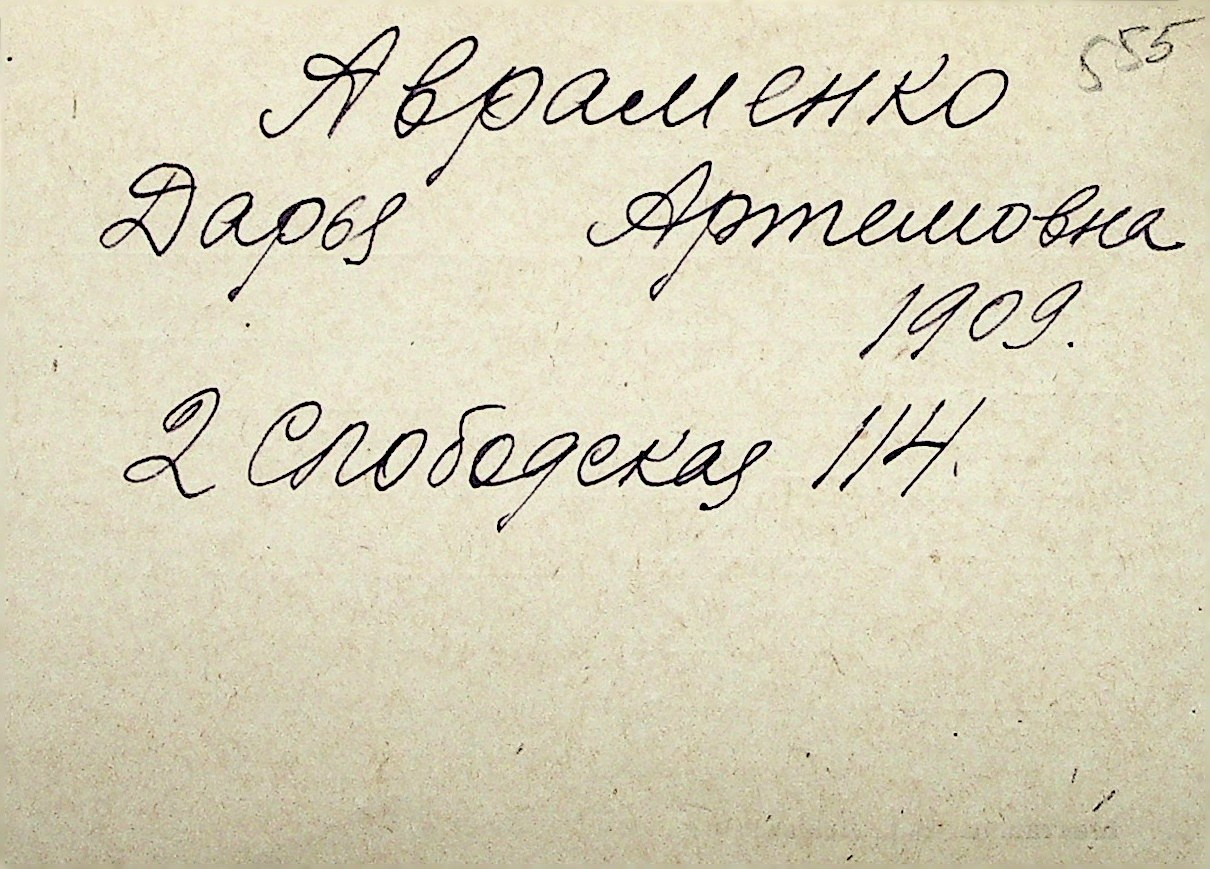 555
Авраменко
Дарья Артемовна
1909.
2 Слободская 114.